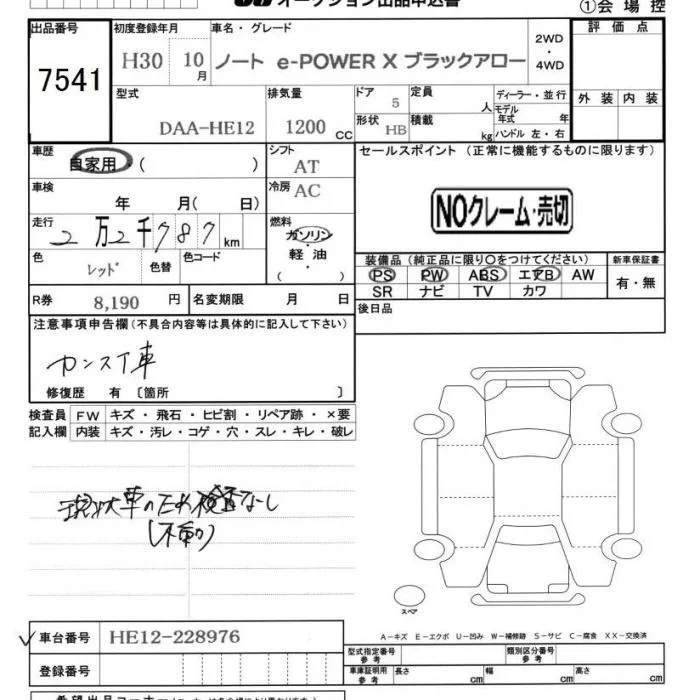 オークション出品申込書
①会場控
出品番号 初度登録年月 車名・グレード 評価点
7541 H30 10月 ノート e-POWER X ブラックアロー 2WD・4WD
型式 排気量 ドア 定員 ディーラー・並行 外装 内装
DAA-HE12 1200 CC 5 人 モデル年式 年
形状 HB 積載 kg ハンドル 左・右
車歴 自家用・( ) シフト AT セールスポイント (正常に機能するものに限ります)
車検 年 月( 日) 冷房 AC
NOクレーム・売切
走行 2万2千787km 燃料 ガソリン・軽油 ( )
色 レッド 色替 色コード
装備品 (純正品に限り○をつけてください) 新車保証書
PS PW ABS エアB AW 有・無
SR ナビ TV カワ
R券 8,190 円 名変期限 月 日
後日品
注意事項申告欄(不具合内容等は具体的に記入して下さい)
カンスイ車
修復歴 有〔箇所 〕
検査員 FW キズ・飛石・ヒビ割・リペア跡・×要
記入欄 内装 キズ・汚レ・コゲ・穴・スレ・キレ・破レ
現状大車のため検査なし
(不動)
スペア
A-キズ E-エクボ U-凹み W-補修跡 S-サビ C-腐食 XX-交換済
車台番号 HE12-228976
型式指定番号参考 類別区分番号参考
登録番号
車庫証明用参考 長さ cm 幅 cm 高さ cm